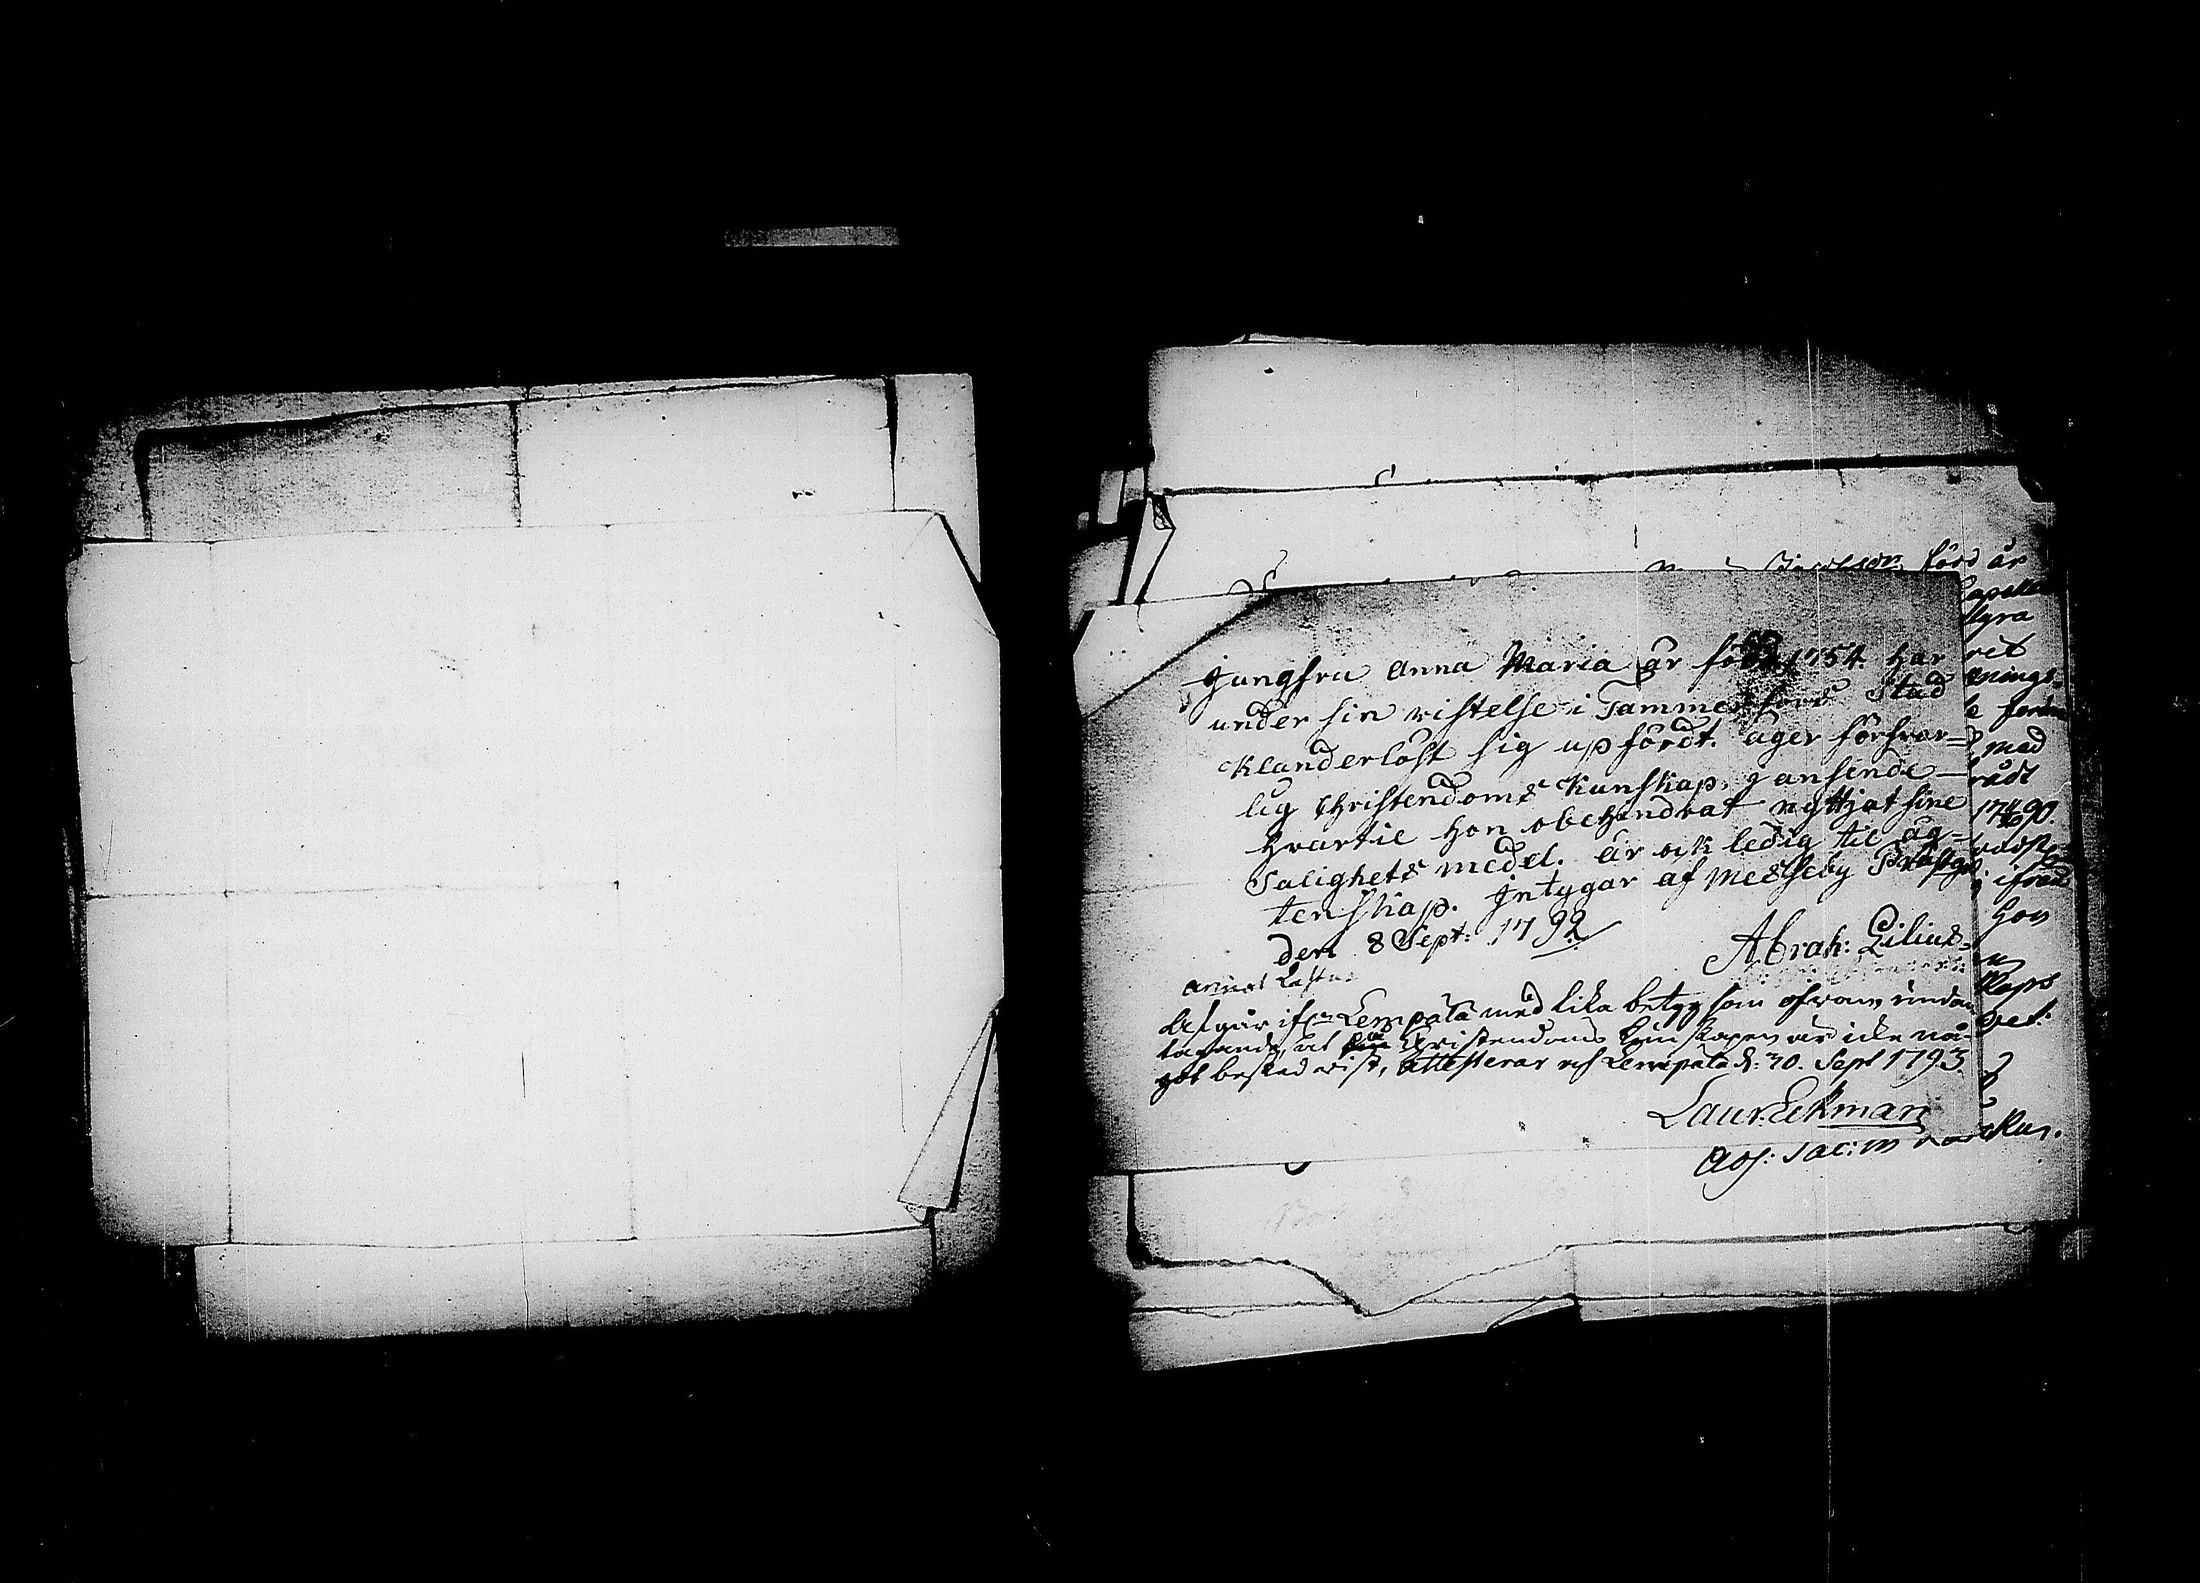 Jungfru Anna Maria är född 1754. har
under sin vistelse i Tammerfors Stad
klanderlöst sig upfördt. äger försvar=
lig Christendoms Kunskap, i anseende
hvartil hon obehindrat nyttjat sine
Salighets medel. är ock ledig til äg=
tenskap. Intygar af Messeby Prästgd
den 8 Sept: 1792
Abrah: Lilius
Afgår ifrn Lempälä med lika betyg som ofvan undan
tagande, at Christendoms Kunskapen är icke nå-
got besked vist, attesterar af Lempälä d: 30. Sept 1793
Laur: Eckman
Adj: Sac:
född är
Capell
styra
ret
nings=
med
1790.
ifrån
hon
skaps